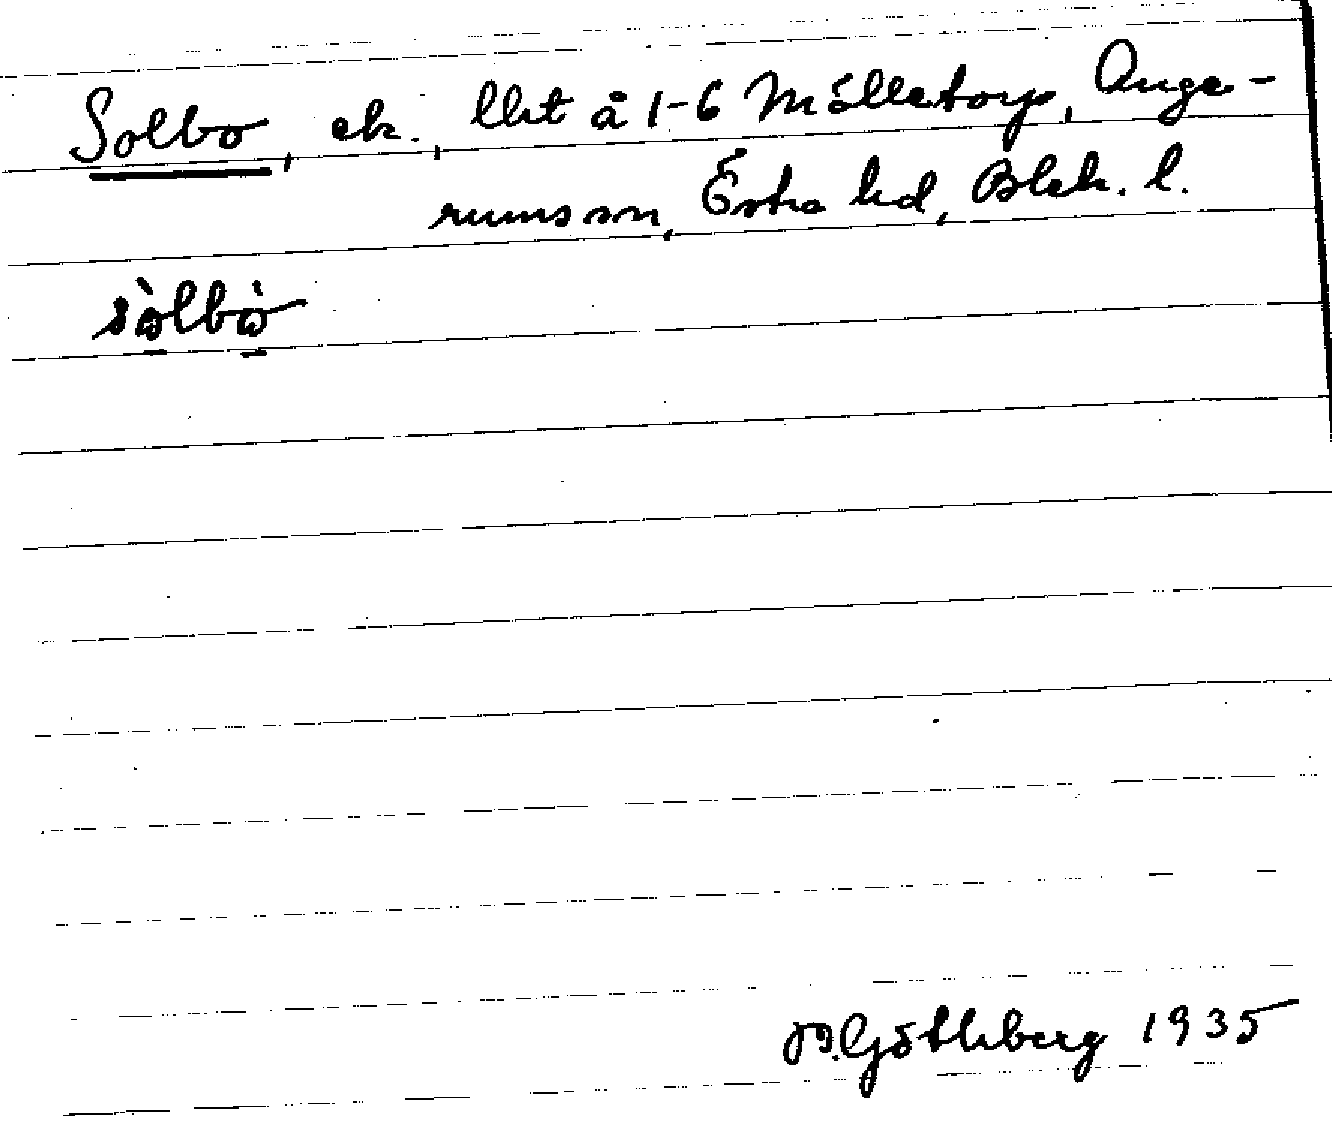 Solbo, ek., lht å 1-6 Mölletorp, Auge-
rums sn, Östra hd, Blek. l.
sòlbò
B. Götlberg 1935